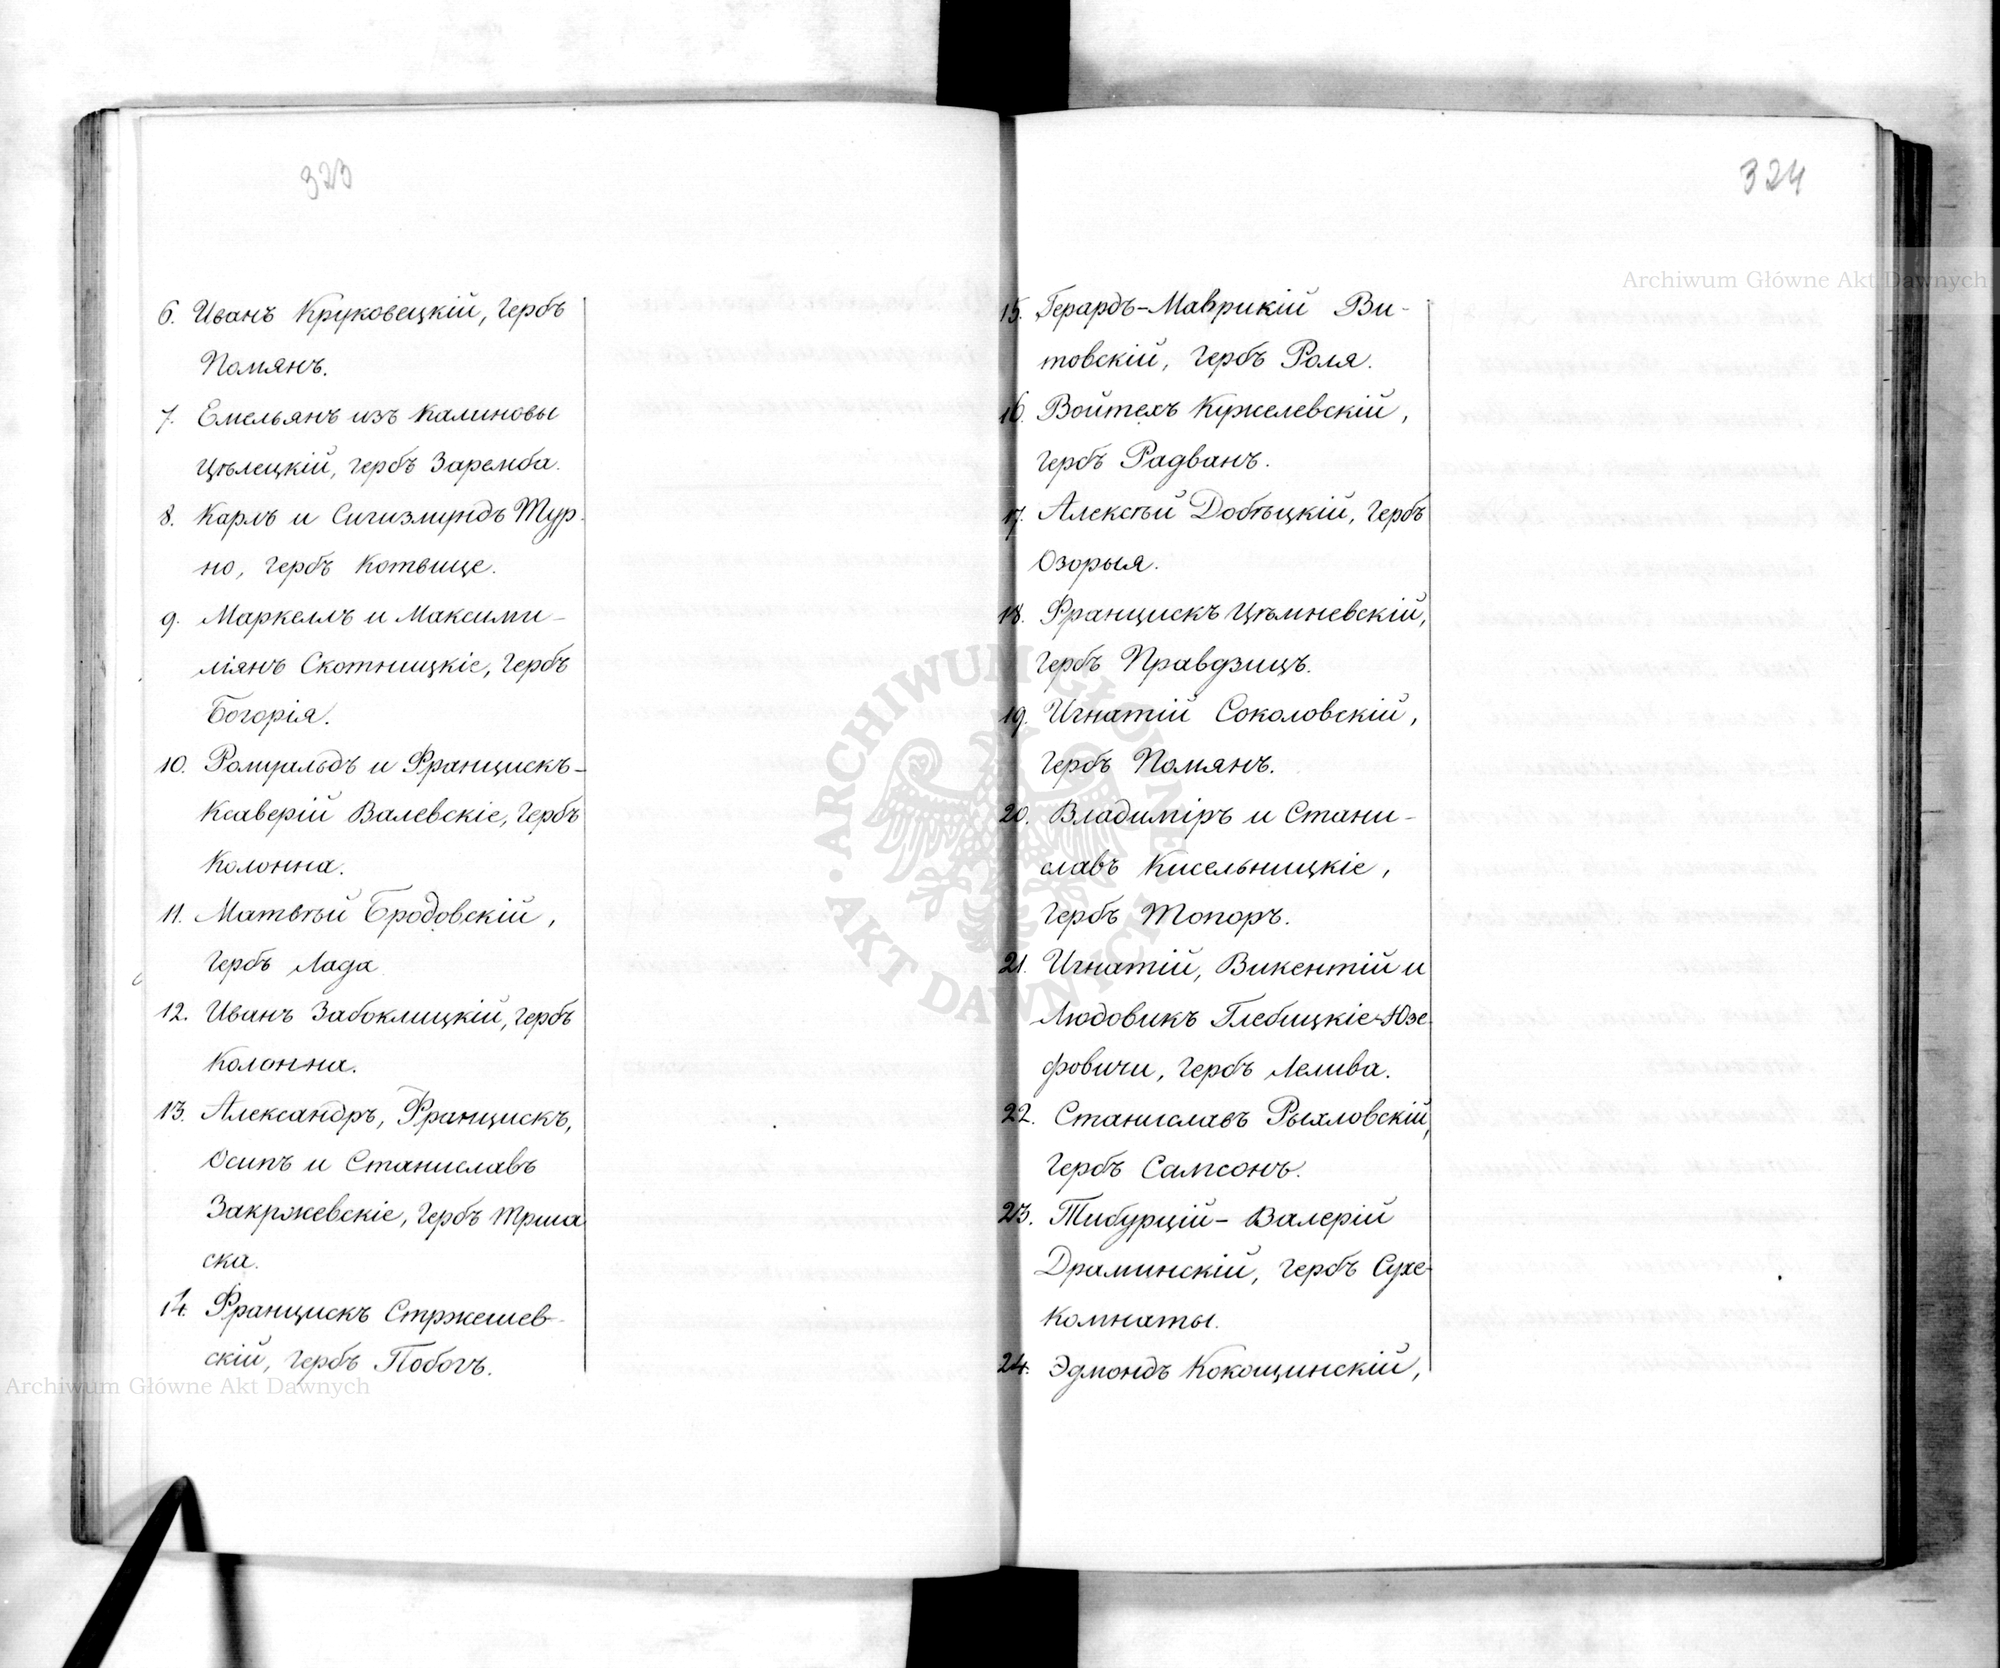 323
6. Иванъ Круковецкій, гербъ
Помянъ.
7. Емельянъ изъ Калиновы
Цѣлецкій, гербъ Заремба.
8. Карлъ и Сигизмундъ Тур-
но, гербъ Котвице.
9. Маркеллъ и Максими-
ліянъ Скотницкіе, гербъ
Богорія.
10. Ромуальдъ и Францискъ-
Ксаверій Валевскіе, гербъ
Колонна.
11. Матвѣй Бродовскій,
гербъ Лада
12. Иванъ Забоклицкій, гербъ
Колонна.
13. Александръ, Францискъ,
Осипъ и Станиславъ
Закржевскіе, гербъ Трша
ска.
14. Францискъ Стржешев-
скій, гербъ Побогъ.
324
15. Герардъ-Маврикій Ви-
товскій, гербъ Роля.
16. Войтехъ Кужелевскій,
гербъ Радванъ.
17. Алексѣй Добѣцкій, гербъ
Озорыя.
18. Францискъ Цѣмневскій,
гербъ Правдзицъ.
19. Игнатій Соколовскій,
гербъ Помянъ.
20. Владиміръ и Стани-
славъ Кисельницкіе,
гербъ Топоръ.
21. Игнатій, Викентій и
Людовикъ Глебицкіе-Юзе
фовичи, гербъ Лелива.
22. Станиславъ Рыхловскій,
гербъ Самсонъ.
23. Тибурцій-Валерій
Драминскій, гербъ Сухе-
комнаты.
24. Эдмондъ Кокощинскій,
Archiwum Główne Akt Dawnych
Archiwum Główne Akt Dawnych
ARCHIWUM GŁÓWNE
AKT DAWNYCH